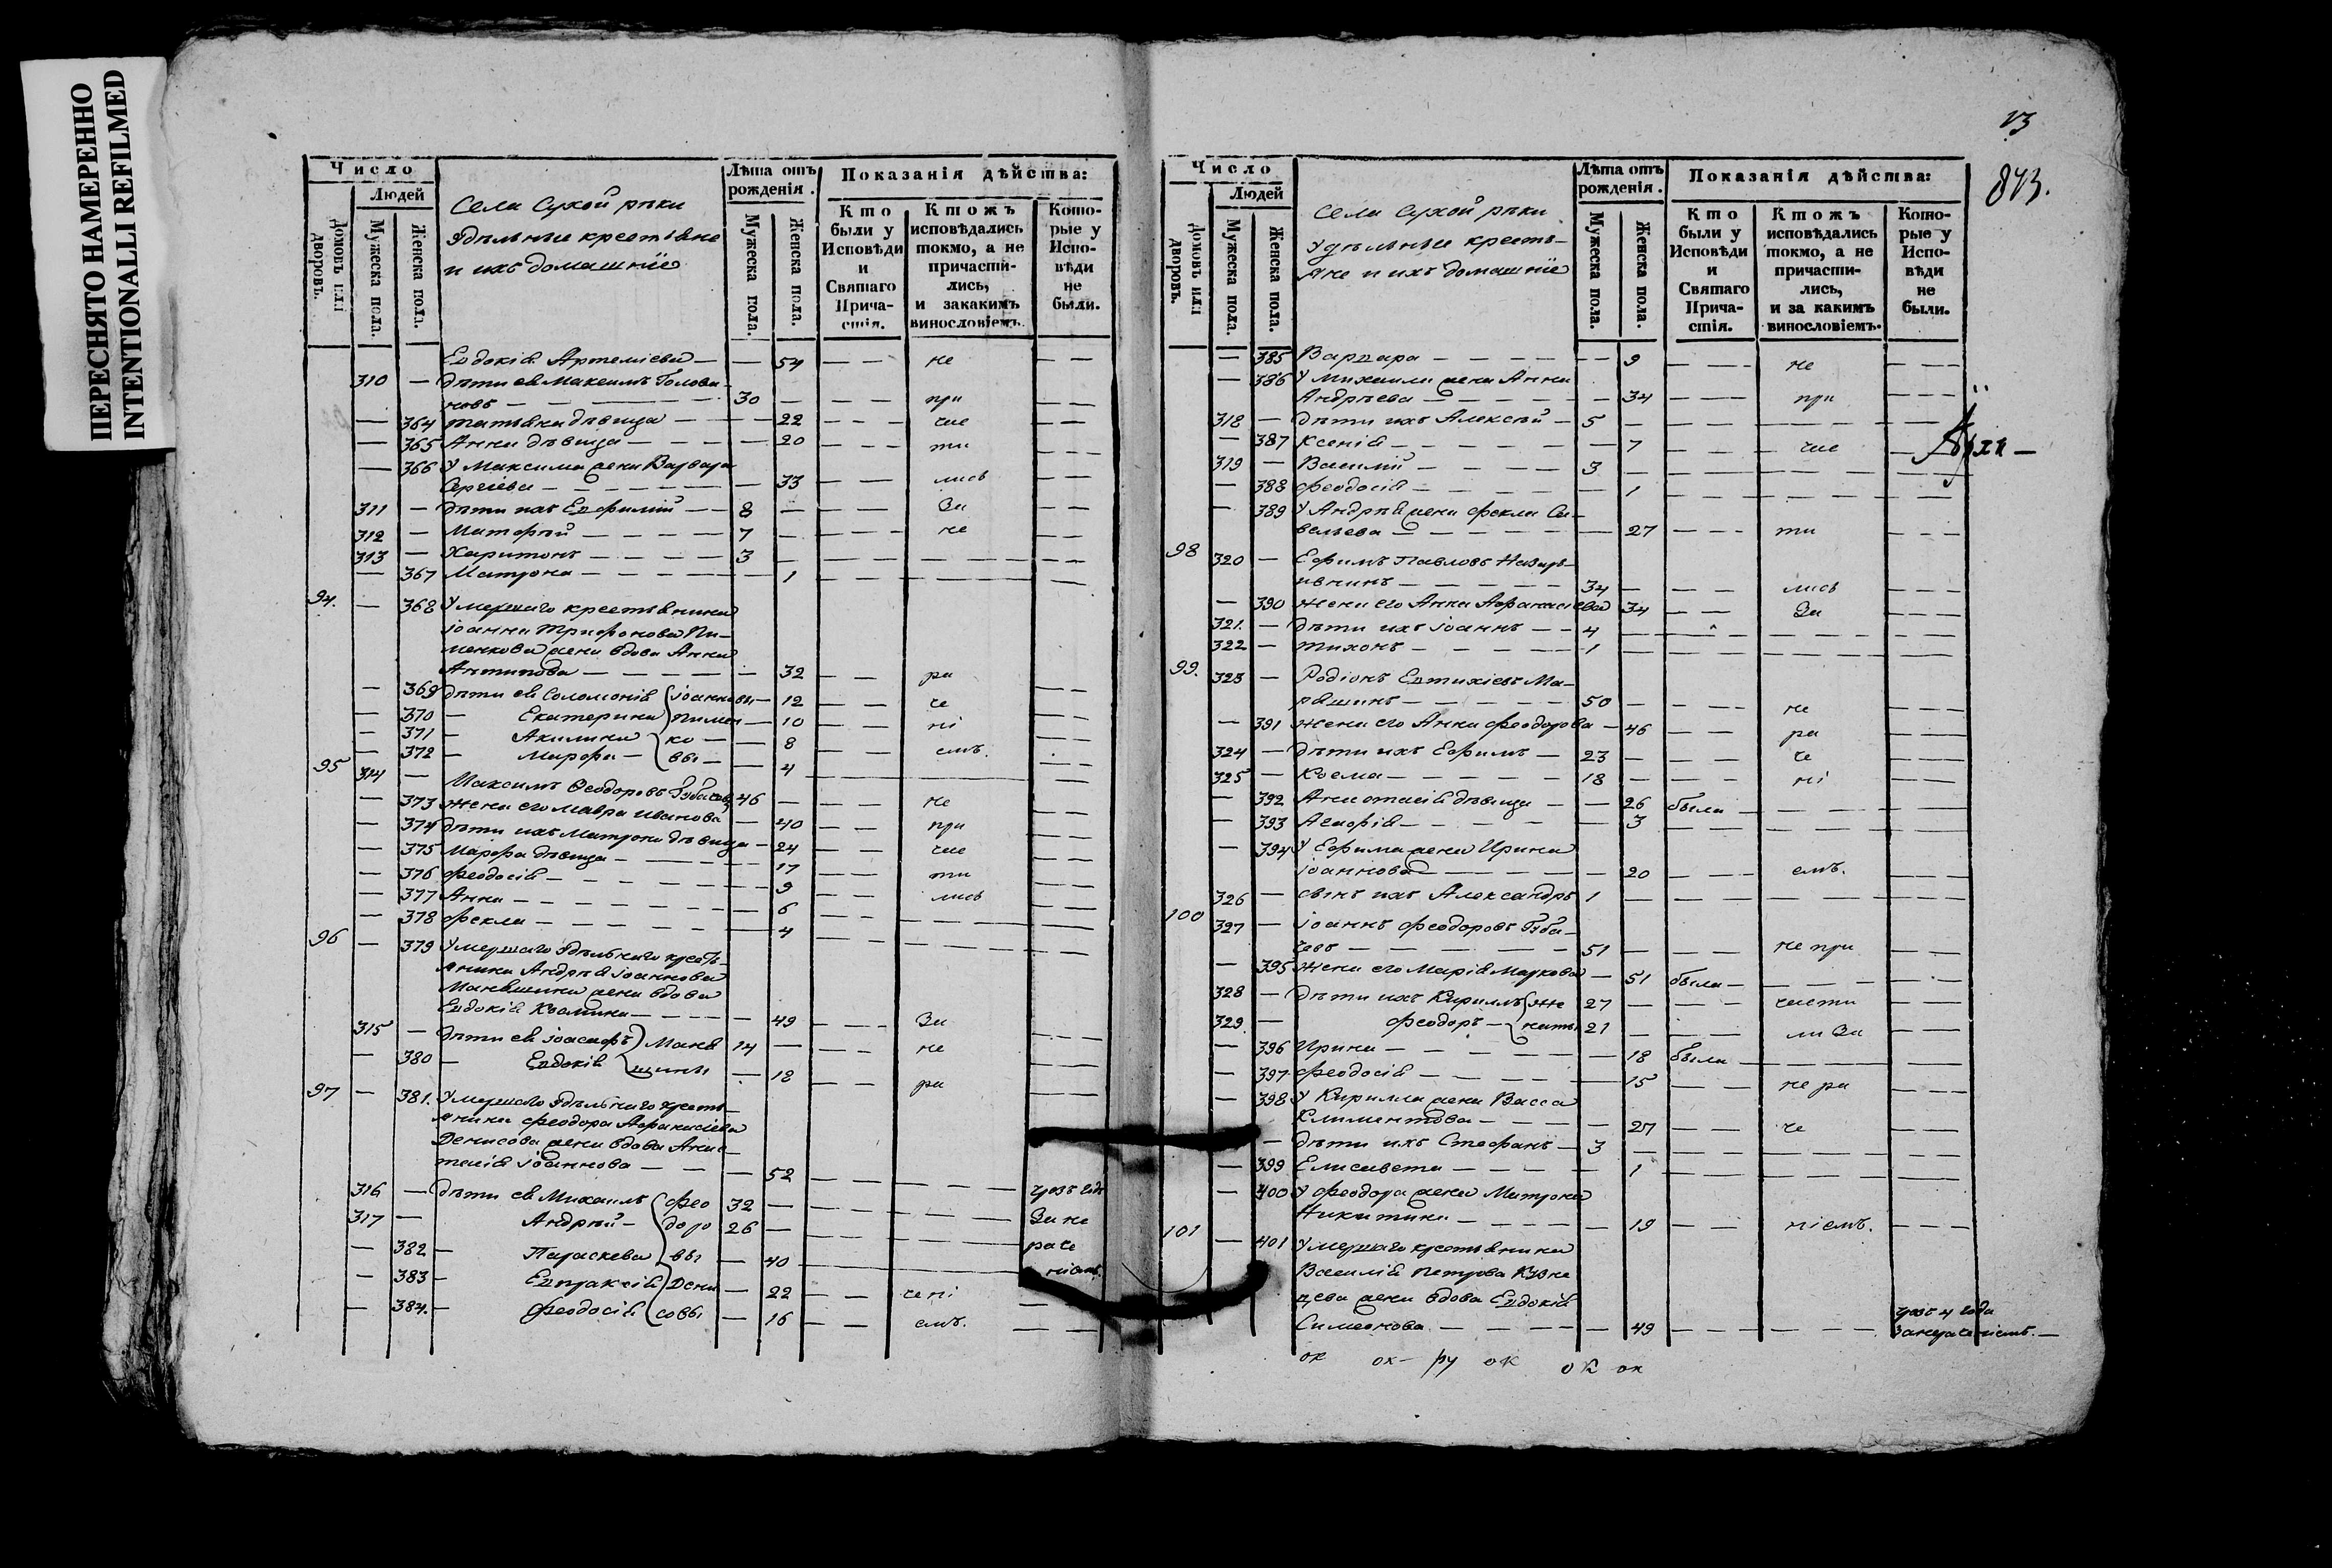 ПЕРЕСНЯТО НАМЕРЕННО
INTENTIONALLI REFILMED
Число
Людей
Домовъ или дворовъ.
Мужеска пола.
Женска пола.
Села Сухой рѣки
Удѣльные крестьяне
и ихъ домашніе
Лѣта отъ рожденія.
Мужеска пола.
Женска пола.
Показанія дѣйства:
Кто были у Исповѣди и Святаго Причастія.
Ктожъ исповѣдались токмо, а не причастились, и закакимъ винословіемъ.
Которые у Исповѣди не были.
Евдокія Артеміева — — 54 — — не — —
310 — дѣти ея Максимъ Голова-
новъ — — 30 — — — при — —
— 364 Татьяна дѣвица — — 22 — — — час — —
— 365 Анна дѣвица — — — 20 — — — ти — — —
— 366 У Максима жена Варвара
Сергіева — — — — — 33 — — лись — —
311 — дѣти ихъ Евфимій — — 8 — — — За — —
312 — Матфей — — — — 7 — — — — не — —
313 — Харитонъ — — — — 3 — — — — — —
— 367 Матрона — — — — — 1 — — — — —
94. — 368 Умершаго крестьянина
Іоанна Трифонова Пи-
менкова жена вдова Анна
Антипова — — — — — 32 — — ра — —
— 369 дѣти ея Соломонія Іоанновы — 12 — — че — —
— 370 — Екатерина Пимен — 10 — — ні — —
— 371 — Акилина ко — — 8 — — емъ. — —
— 372 — Марфа — вы — — 4 — — — —
95 314 — Максимъ Ѳеодоровъ Губачовъ 46 — — — не — —
— 373 жена его Мавра Иванова — 40 — — при — —
— 374 дѣти ихъ Матрона дѣвица — 24 — — час — —
— 375 Марфа дѣвица — — — — 17 — — ти — —
— 376 Феодосія — — — — — — 9 — — лись — —
— 377 Анна — — — — — — 6 — — — — —
— 378 Фекла — — — — — — 4 — — — — —
96 — 379 Умершаго Удѣльнаго кресть-
янина Андрея Іоаннова
Манвшина жена вдова
Евдокія Козмина — — — — 49 — — — За — — —
315 — дѣти ея Іоасафъ Манв 14 — — — — не — — —
— 380 — Евдокія шины — 18 — — ра — —
97 — 381. Умершаго Удѣльнаго кресть-
янина Феодора Афанасіева
Денисова жена вдова Анас-
тасія Іоаннова — — — 52 — — — — — чрезъ годъ
316 — дѣти ея Михаилъ Фео 32 — — — — — — За не
317 — Андрей — доро 26 — — — — — — раче
— 382 — Параскева вы — 40 — — ніемъ
— 383 — Евпраксія Дени — 22 — — чені —
— 384. — Феодосія совы — 16 — — емъ. — —
13
843.
Число
Людей
Домовъ или дворовъ.
Мужеска пола.
Женска пола.
Села Сухой рѣки
Удѣльные кресть-
яне и ихъ домашніе
Лѣта отъ рожденія.
Мужеска пола.
Женска пола.
Показанія дѣйства:
Кто были у Исповѣди и Святаго Причастія.
Ктожъ исповѣдались токмо, а не причастились, и за какимъ винословіемъ.
Которые у Исповѣди не были.
— 385 Варвара — — — — — 9 — — — не — — —
— 386 У Михаила жена Анна
Андрѣева — — — — — 34 — — — при — — —
318 — дѣти ихъ Алексѣй — 5 — — — — — —
— 387 Ксенія — — — — — 7 — — — час —
319 — Василій — — — — 3 — — — — — —
— 388 Феодосія — — — — — 1 — — — — — —
— 389 У Андрея жена Фекла Са-
вельева — — — — — 27 — — — ти — — —
98 320 — Ефимъ Павловъ Назарь-
ивнинъ — — — — — 34 — — — — лись — —
— 390 жена его Анна Афанасіева 34 — — За — —
321. — дѣти ихъ Іоаннъ — — 4 — — — — — —
322 — Тихонъ — — — — 1 — — — — — —
99. 323 — Родіонъ Евтихіевъ Ма-
ряшинъ — — — — — 50 — — — — не — —
— 391 жена его Анна Феодорова — 46 — — ра — —
324 — дѣти ихъ Ефимъ — 23 — — — — че — —
325 — Козма — — — — — 18 — — — — ні — —
— 392 Анастасія дѣвица — — 26 была — — — —
— 393 Агафія — — — — — 3 — — — — —
— 394 У Ефима жена Ирина
Іоаннова — — — — — 20 — — — емъ. — —
326 — сынъ ихъ Александръ 1 — — — — — —
100 327 — Іоаннъ Феодоровъ Губа-
човъ — — — — — 51 — — — не при — —
— 395 жена его Марія Маркова — 51 была — — — —
328 — дѣти ихъ Кириллъ же 27 — — — части — —
329. — Феодоръ — наты 21 — — — ли За — —
— 396 Ирина — — — — — 18 была — — — —
— 397 Феодосія — — — — — 15 — — не ра — —
— 398 У Кирилла жена Васса
Климентова — — — — 27 — — че — —
— дѣти ихъ Стефанъ — 3 — — — — — —
— 399 Елисавета — — — — 1 — — — — —
— 400 У Феодора жена Матрона
Никитина — — — — — 19 — — ніемъ. — — —
101 — 401 Умершаго крестьянина
Василія Петрова Кузне
цова жена вдова Евдокія
Симеонова — — — — — 49 — — — — — чрезъ 4 года
За нераченіемъ. —